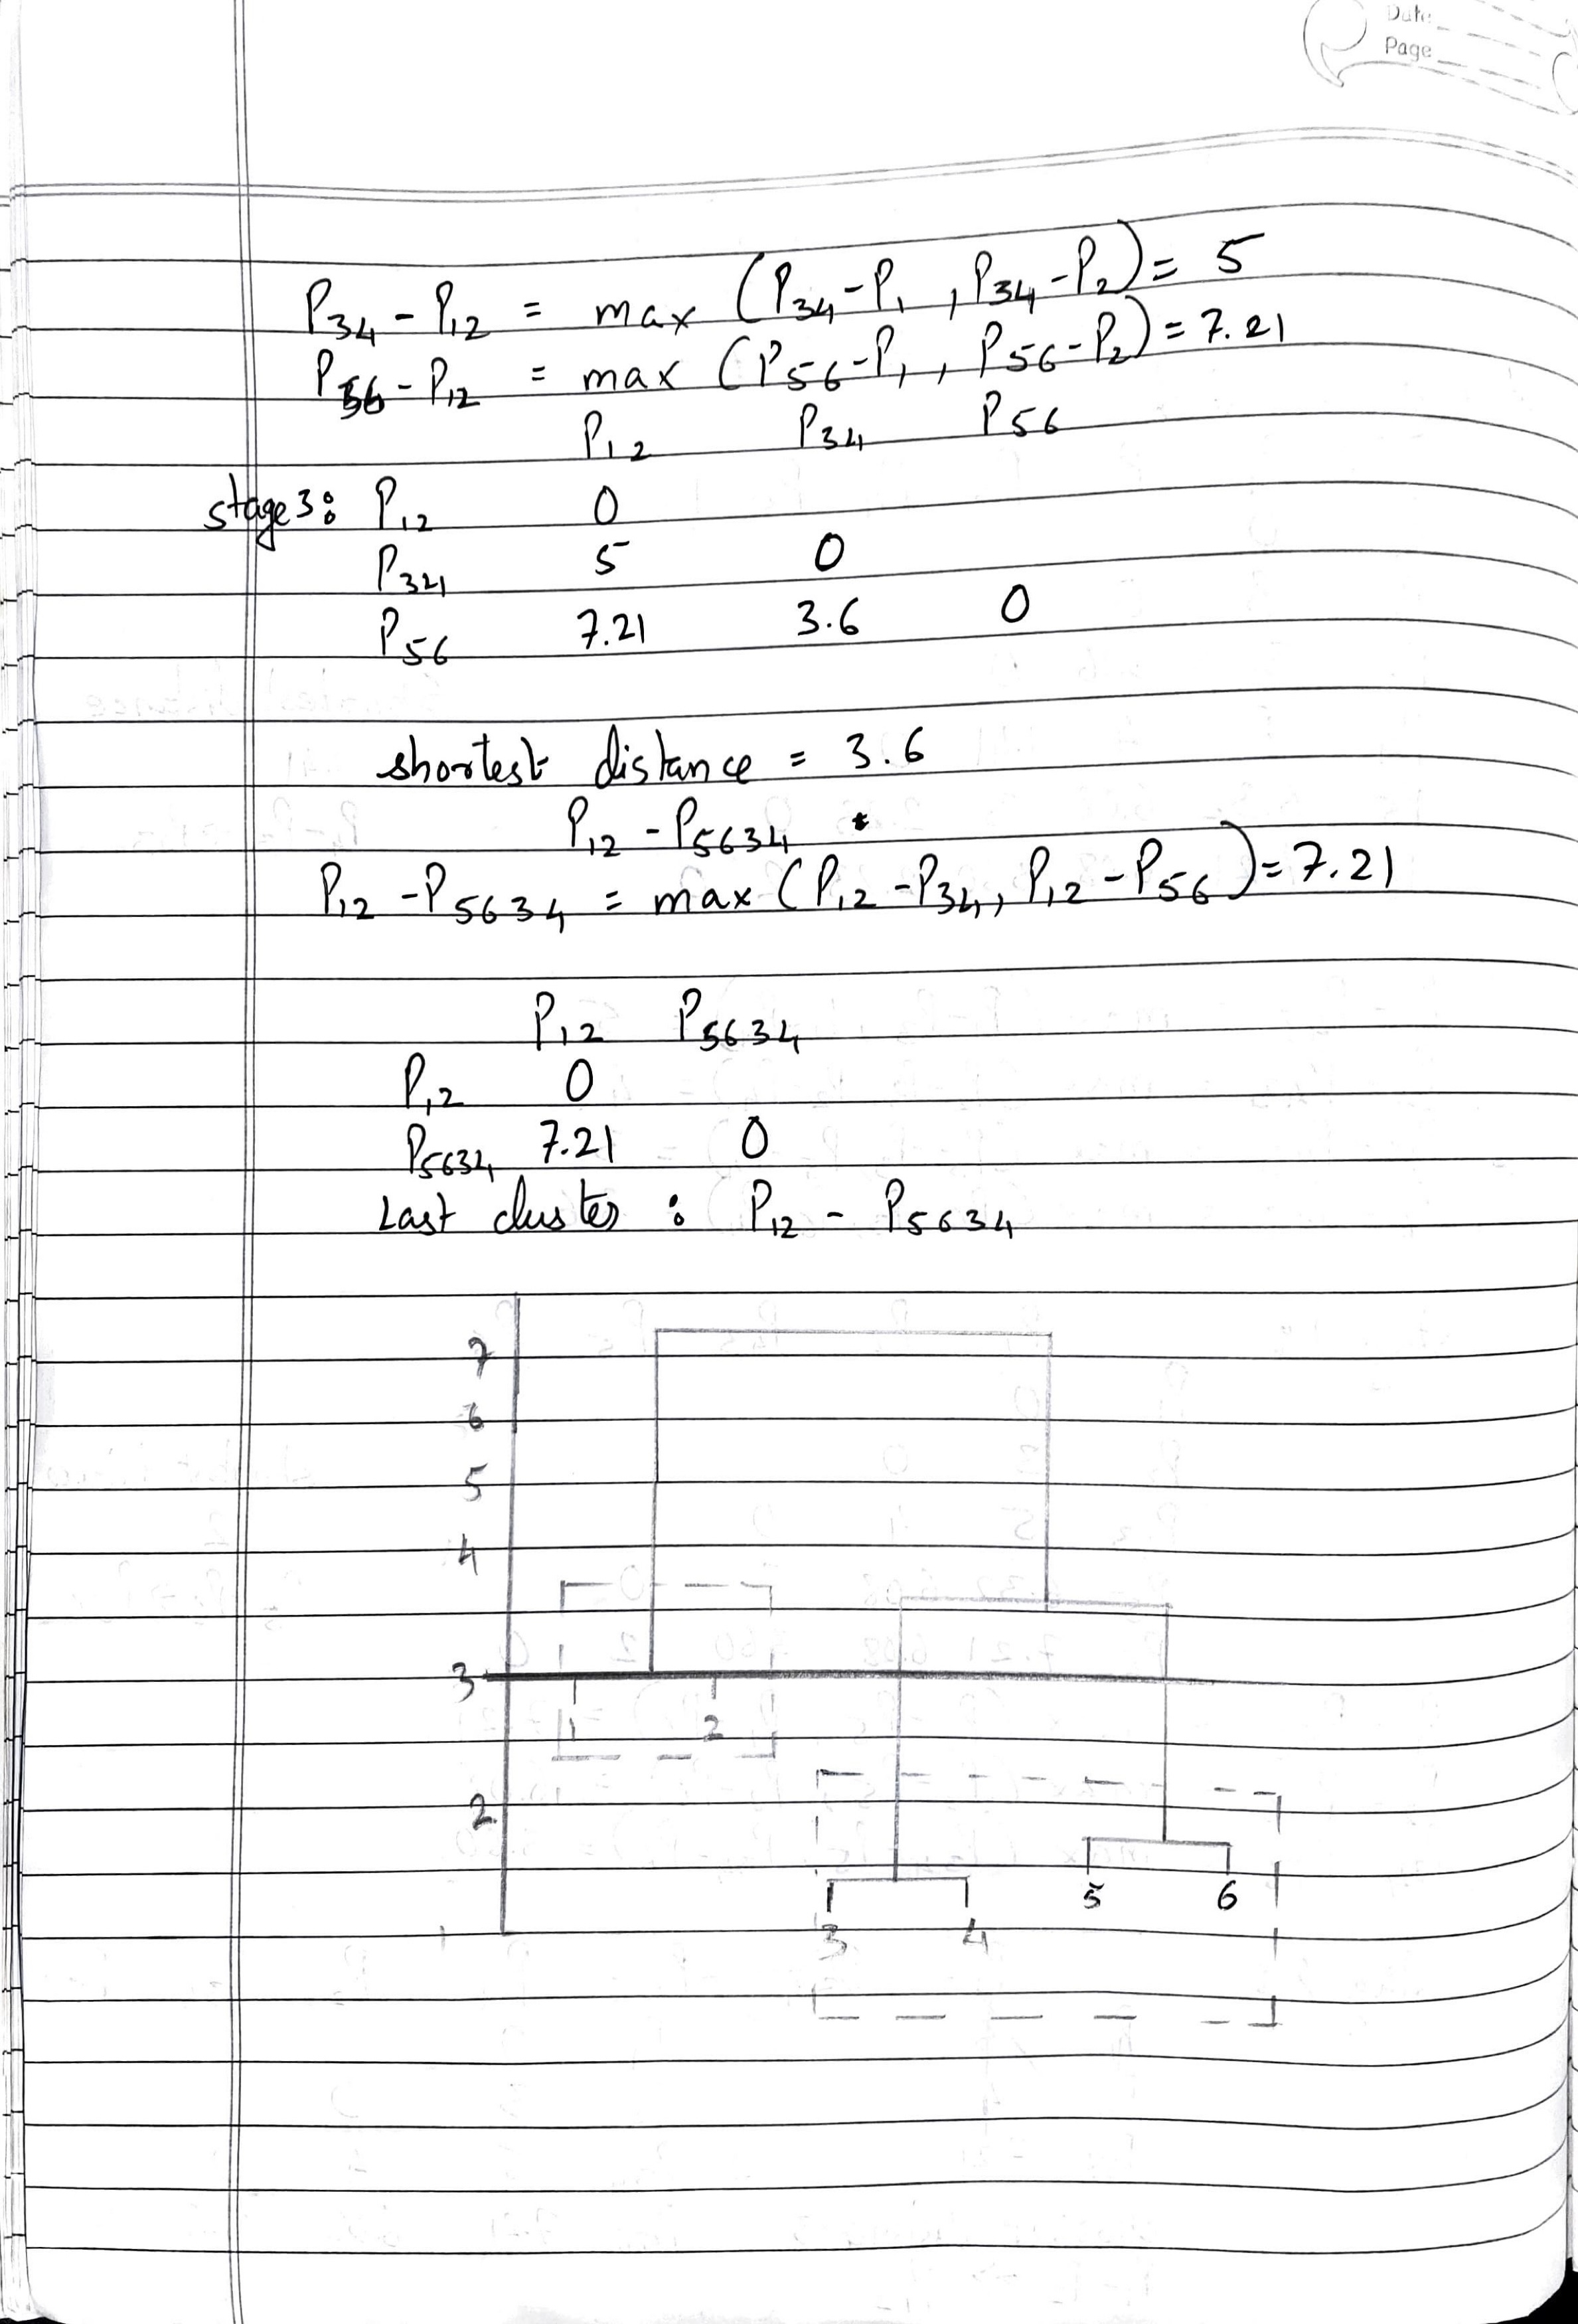 Date
Page
P34 - P12 = max (P34-P1, P34-P2) = 5
P56 - P12 = max (P56-P1, P56-P2) = 7.21
P12 P34 P56
stage 3: P12 0
P34 5 0
P56 7.21 3.6 0
shortest distance = 3.6
P12 - P5634
P12 - P5634 = max (P12 - P34, P12 - P56) = 7.21
P12 P5634
P12 0
P5634 7.21 0
Last cluster : P12 - P5634
7
6
5
4
3
1 2
2
5 6
3 4